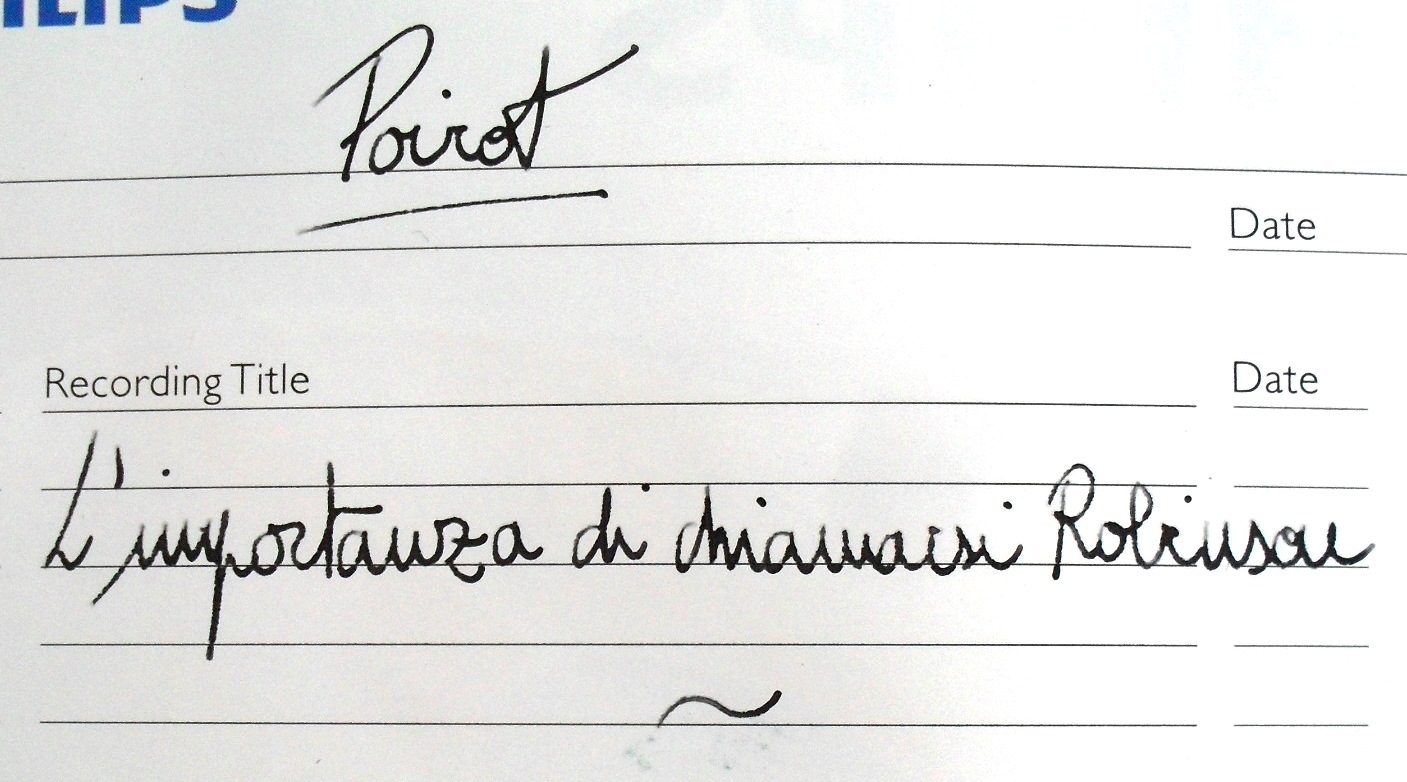 PHILIPS
Poirot
Date
Recording Title Date
L'importanza di chiamarsi Robinson